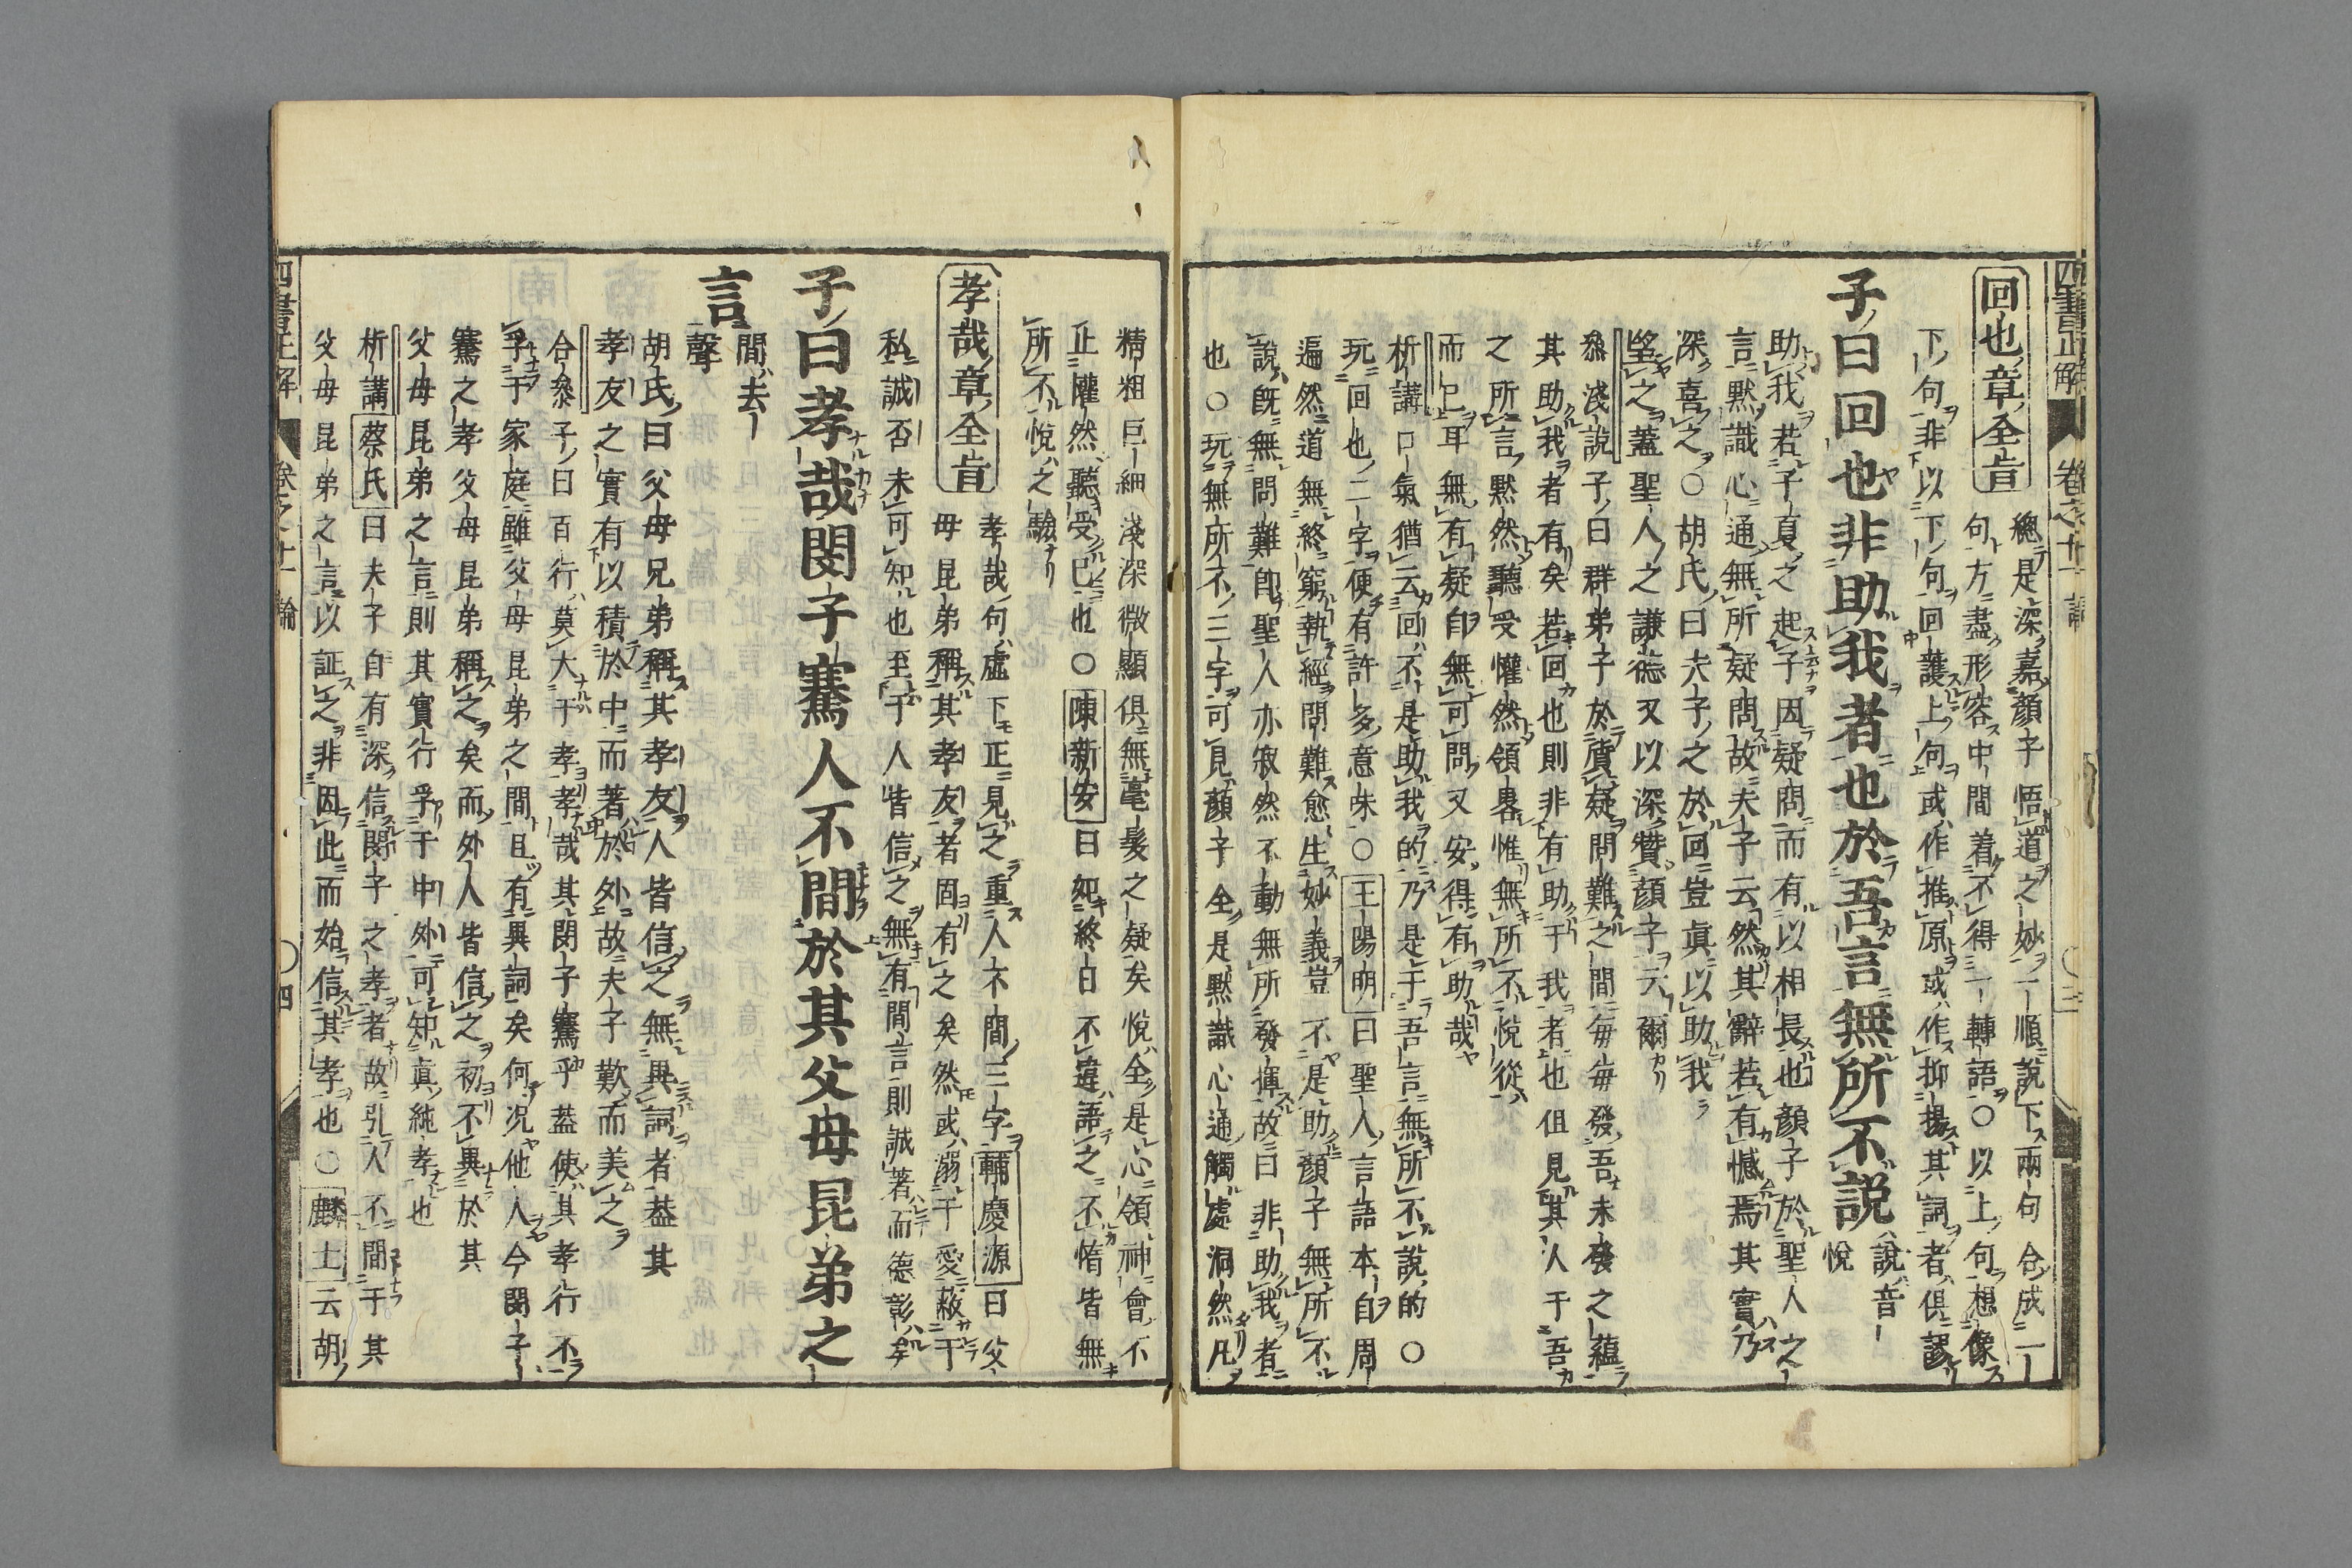 四書正解 卷之十一 論 〇三
回也章全旨
總是深嘉顏子悟道之妙一順說下兩句合成一
句方盡形容中間着不得一轉語〇以上句想像
下句非以下句回護上句或作推原或作抑揚其詞者俱謬
子曰回也非助我者也於吾言無所不說
說音
悅
助我若子夏之起予因疑問而有以相長也顏子於聖人之
言默識心通無所疑問故夫子云然其辭若有憾焉其實乃
深喜之〇胡氏曰夫子之於回豈真以助我
望之蓋聖人之謙德又以深贊顏子云爾
叅淺說子曰群弟子於質疑問難之間每每發吾未發之蘊
其助我者有矣若回也則非有助于我者也但見其人于吾
之所言默然聽受懽然領畧惟無所不悅從
而已耳無有疑自無可問又安得有助哉
析講口氣猶云回不是助我的乃是于吾言無所不說的〇
玩回也二字便有許多意味〇王陽明曰聖人言語本自周
遍然道無終窮執經問難愈生妙義豈不是助顏子無所不
說既無問難卽聖人亦寂然不動無所發揮故曰非助我者
也〇玩無所不三字可見顏子全是默識心通觸處洞然凡
精粗巨細淺深微顯俱無毫髮之疑矣悅全是心領神會不
止懽然聽受已也〇陳新安曰如終日不違語之不惰皆無
所不悅之驗
孝哉章全旨
孝哉句虛下正見之重人不間三字輔慶源曰父
母昆弟稱其孝友者固有之矣然或溺于愛蔽于
私誠否未可知也至于人皆信之無有間言則誠著而德彰矣
子曰孝哉閔子騫人不間於其父母昆弟之
言
間去
聲
胡氏曰父母兄弟稱其孝友人皆信之無異詞者益其
孝友之實有以積於中而著於外故夫子歎而美之
合叅子曰百行莫大于孝孝哉其閔子騫乎蓋使其孝行不
孚于家庭雖父母昆弟之間且有異詞矣何况他人今閔子
騫之孝父母昆弟稱之矣而外人皆信之初不異於其
父母昆弟之言則其實行孚于中外可知眞純孝也
析講蔡氏曰夫子自有深信閔子之孝者故引人不間于其
父母昆弟之言以証之非因此而始信其孝也〇麟士云胡
四書正解 卷之十一 論 〇四